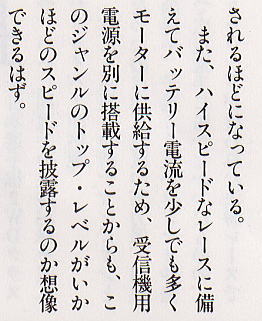 されるほどになっている。
また、ハイスピードなレースに備
えてバッテリー電流を少しでも多く
モーターに供給するため、受信機用
電源を別に搭載することからも、こ
のジャンルのトップ・レベルがいか
ほどのスピードを披露するのか想像
できるはず。